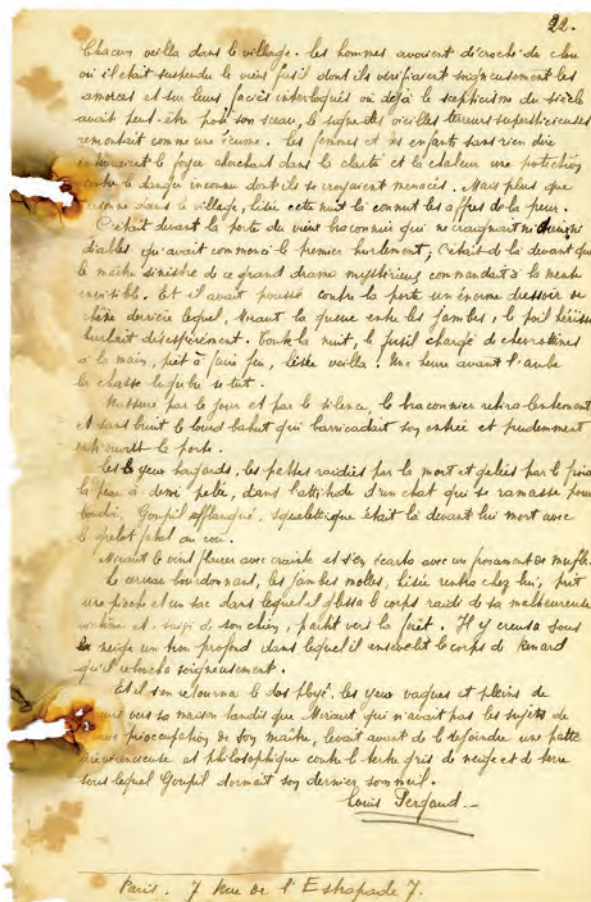 22.
Chacun veilla dans le village. Les hommes avaient décroché du clou
où il était suspendu le vieux fusil dont ils vérifiaient soigneusement les
amorces et sur leurs faciès interloqués où déjà le scepticisme du siècle
avait peut-être posé son sceau, le signe des vieilles terreurs superstitieuses
remontait comme une écume. Les femmes et les enfants sans rien dire
le foyer cherchant dans la clarté et la chaleur une protection
contre le danger inconnu dont ils se croyaient menacés. Mais plus que
personne dans le village, Lisée cette nuit là connut les affres de la peur.
C'était devant la porte du vieux braconnier qui ne craignait ni
diables qu'avait commencé le premier hurlement; c'était de là devant que
le maître sinistre de ce grand drame mystérieux commandait à la meute
invisible. Et il avait poussé contre la porte un énorme dressoir de
chêne derrière lequel, Miraut la queue entre les jambes, le poil hérissé
hurlait désespérément. Toute la nuit, le fusil chargé de chevrotines
à la main, prêt à faire feu, Lisée veilla. Une heure avant l'aube
la chasse lugubre se tut.
Rassuré par le jour et par le silence, le braconnier retira lentement
et sans bruit le lourd bahut qui barricadait son entrée et prudemment
entrouvrit la porte.
Les yeux hagards, les pattes raidies par la mort et gelées par le froid
la peau à demi pelée, dans l'attitude d'un chat qui se ramasse pour
bondir, Goupil efflanqué, squelettique était là devant lui mort avec
le grelot fatal au cou.
Miraut le vint flairer avec crainte et s'en écarta avec un froncement de mufle.
Le cerveau bourdonnant, les jambes molles, Lisée rentra chez lui, prit
une pioche et un sac dans lequel il glissa le corps raidi de sa malheureuse
victime et, suivi de son chien, partit vers la forêt. Il y creusa sous
la neige un trou profond dans lequel il ensevelit le corps de Renard
qu'il reboucha soigneusement.
Et il s'en retourna le dos ployé, les yeux vagues et pleins de
vers sa maison tandis que Miraut qui n'avait pas les sujets de
grave préoccupation de son maître, levait avant de le rejoindre une patte
irrévérencieuse et philosophique contre le tertre gris de neige et de terre
sous lequel Goupil dormait son dernier sommeil.
Louis Pergaud.
Paris. 7 Rue de l'Estrapade 7.